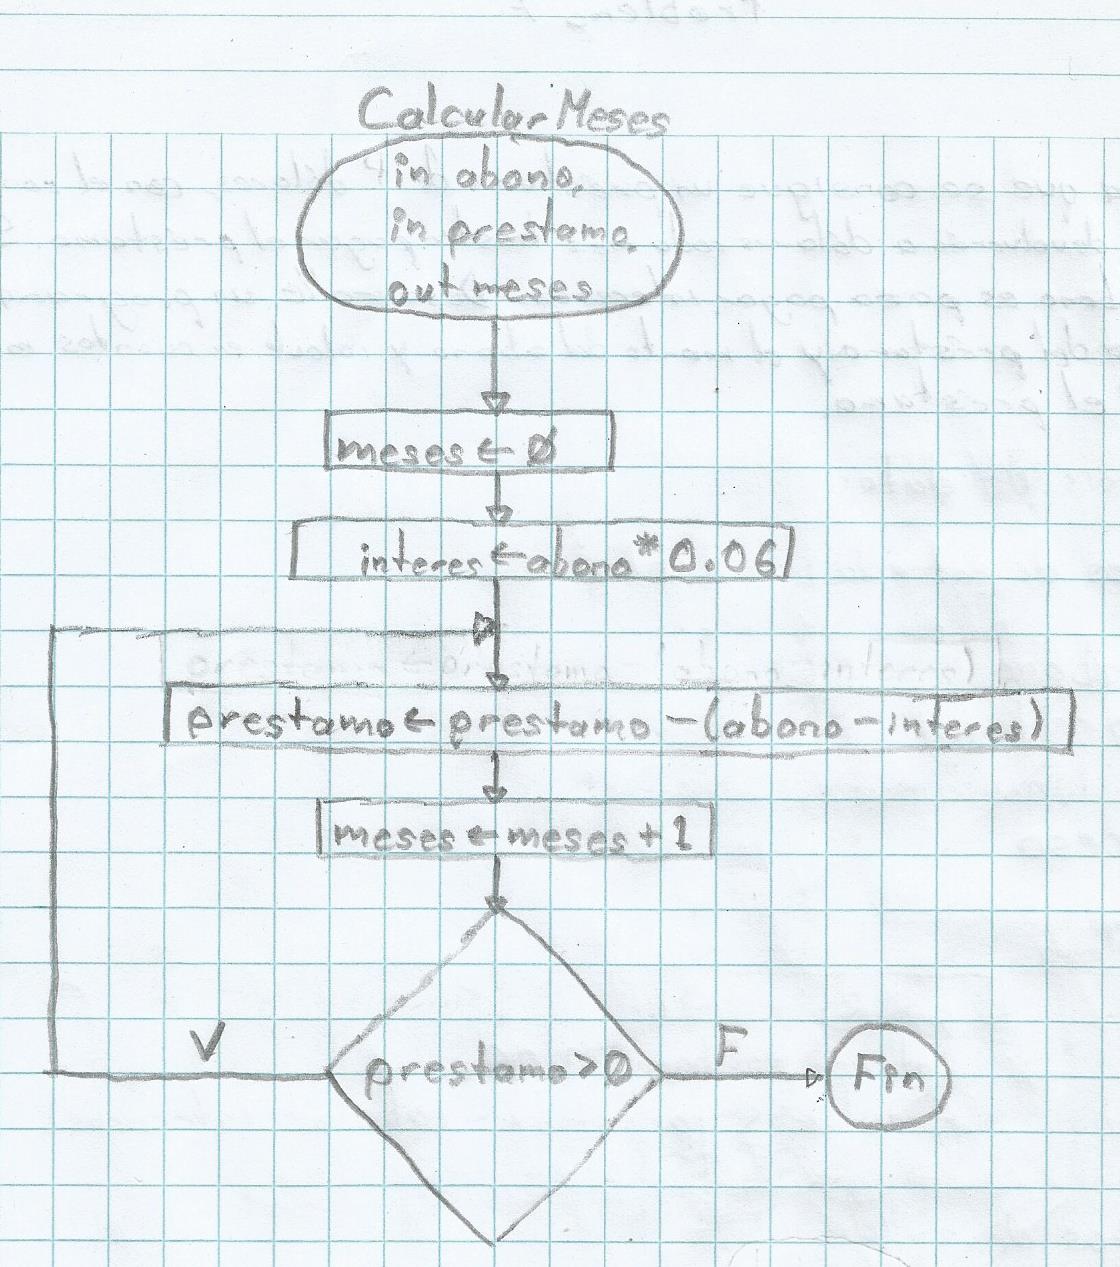 Calcular Meses
in abono,
in prestamo,
out meses
meses ← 0
interes ← abono * 0.06
prestamo ← prestamo - (abono - interes)
meses ← meses + 1
prestamo > 0
V
F
Fin